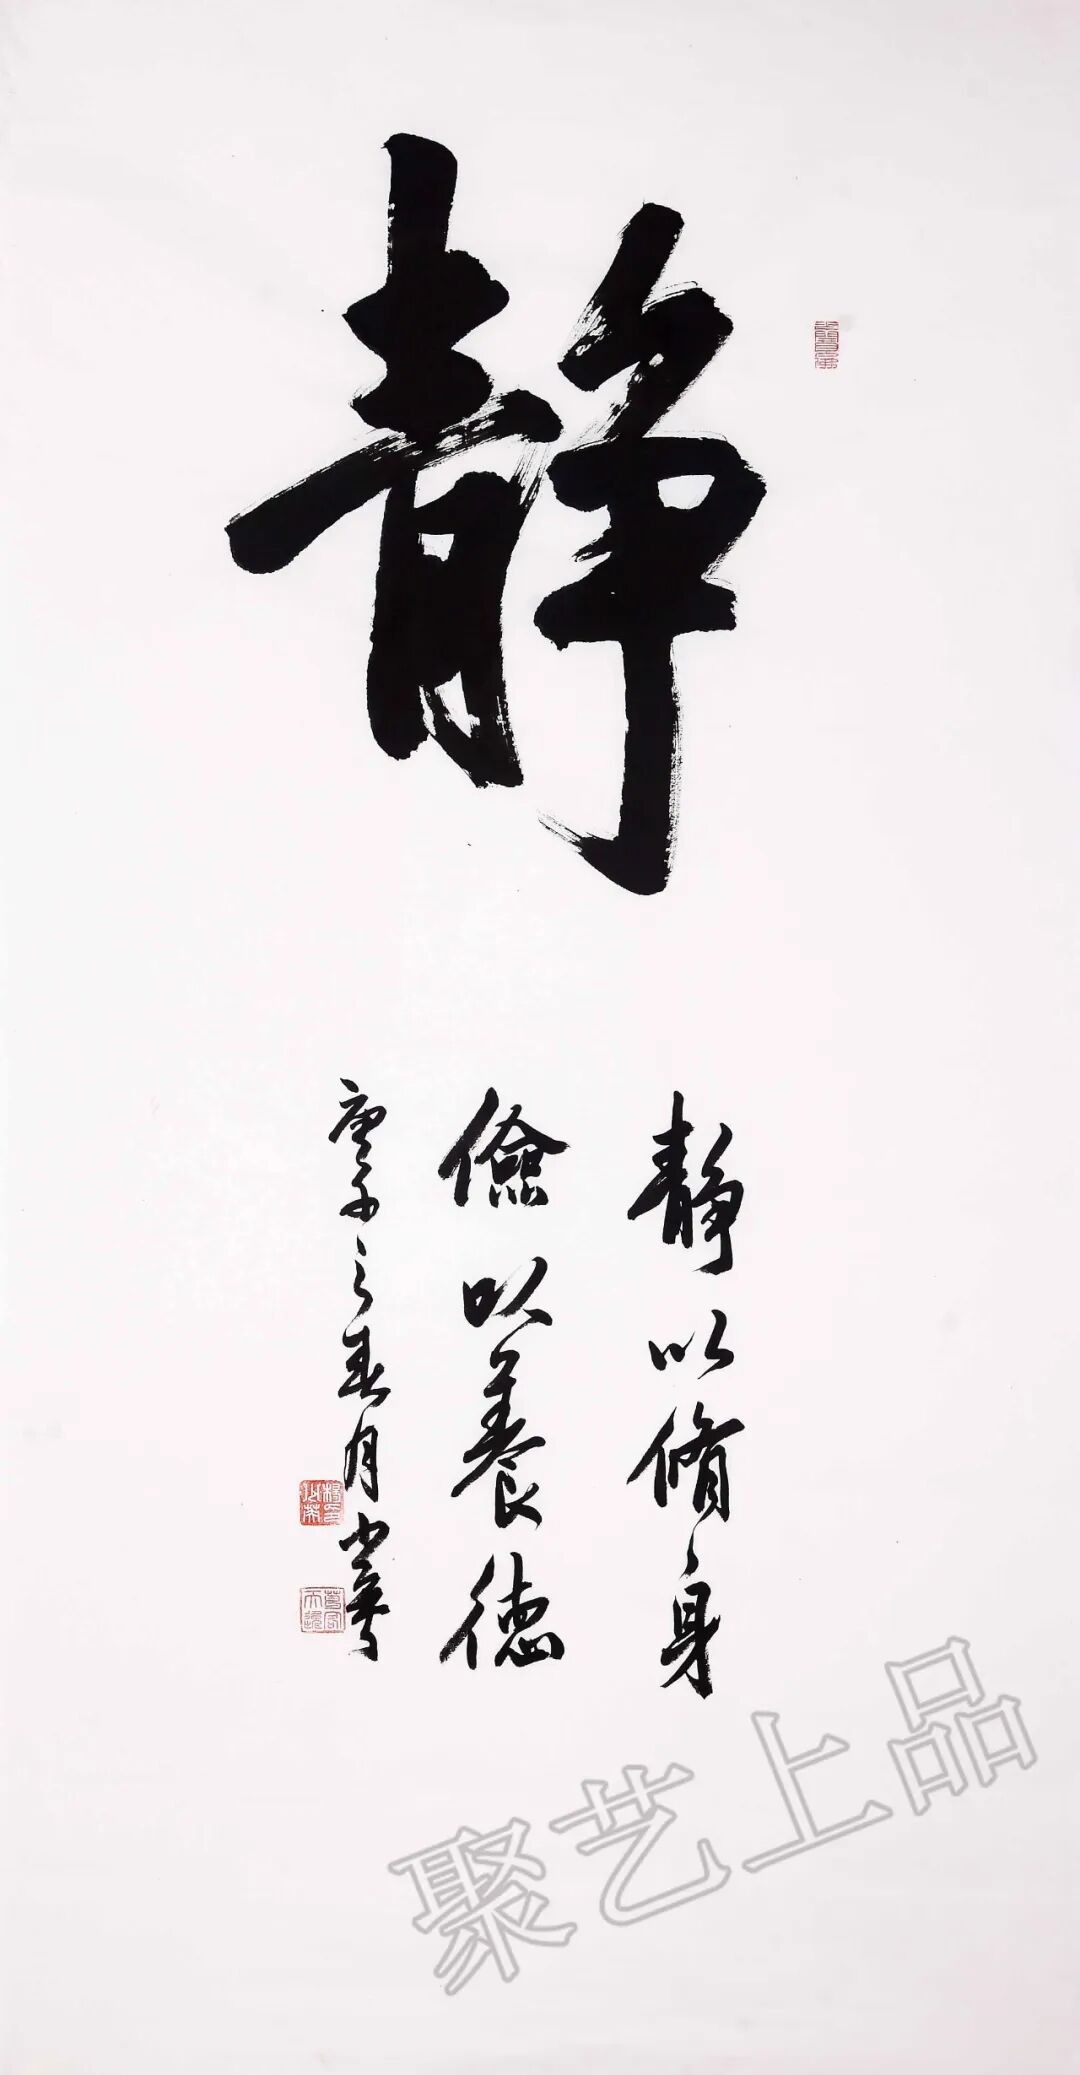 静
静以脩身
儉以養德
庚子之春月小英
聚艺上品